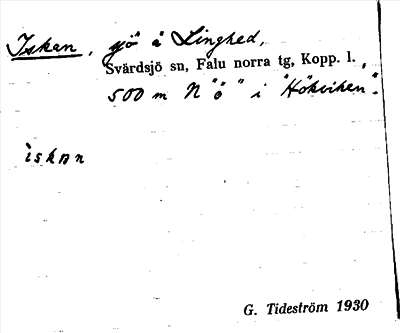 Iskan, sjö å Linghed,
Svärdsjö sn, Falu norra tg, Kopp. l.,
500 m N "ö" i "Hökviken".
ìskan
G. Tideström 1930